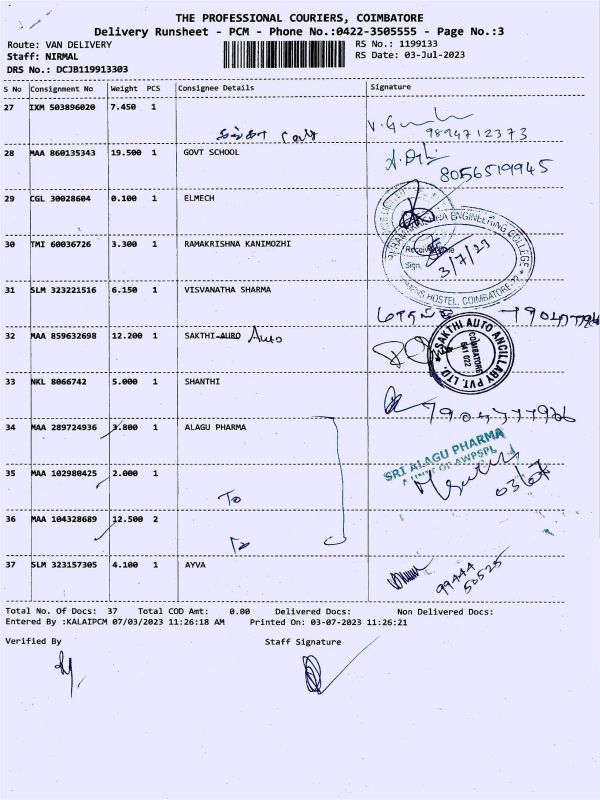 THE PROFESSIONAL COURIERS, COIMBATORE
Delivery Runsheet - PCM - Phone No.:0422-3505555 - Page No.:3
Route: VAN DELIVERY RS No.: 1199133
Staff: NIRMAL RS Date: 03-Jul-2023
DRS No.: DCJB119913303
S No Consignment No Weight PCS Consignee Details Signature
27 IXM 503896020 7.450 1
9894712373
28 MAA 860135343 19.500 1 GOVT SCHOOL
8056519945
29 CGL 30028604 0.100 1 ELMECH
30 TMI 60036726 3.300 1 RAMAKRISHNA KANIMOZHI
ENGINEERING COLLEGE
HOSTEL, COIMBATORE
Sign.
3/7/23
31 SLM 323221516 6.150 1 VISVANATHA SHARMA
32 MAA 859632698 12.200 1 SAKTHI AURO Auto
SAKTHI AUTO ANCILLARY PVT. LTD.
COIMBATORE
641 022
33 NKL 8066742 5.000 1 SHANTHI
34 MAA 289724936 3.800 1 ALAGU PHARMA
SRI ALAGU PHARMA
A UNIT OF AWPSPL
35 MAA 102980425 2.000 1
To
36 MAA 104328689 12.500 2
To
37 SLM 323157305 4.100 1 AYVA
99444
50525
Total No. Of Docs: 37 Total COD Amt: 0.00 Delivered Docs: Non Delivered Docs:
Entered By :KALAIPCM 07/03/2023 11:26:18 AM Printed On: 03-07-2023 11:26:21
Verified By Staff Signature